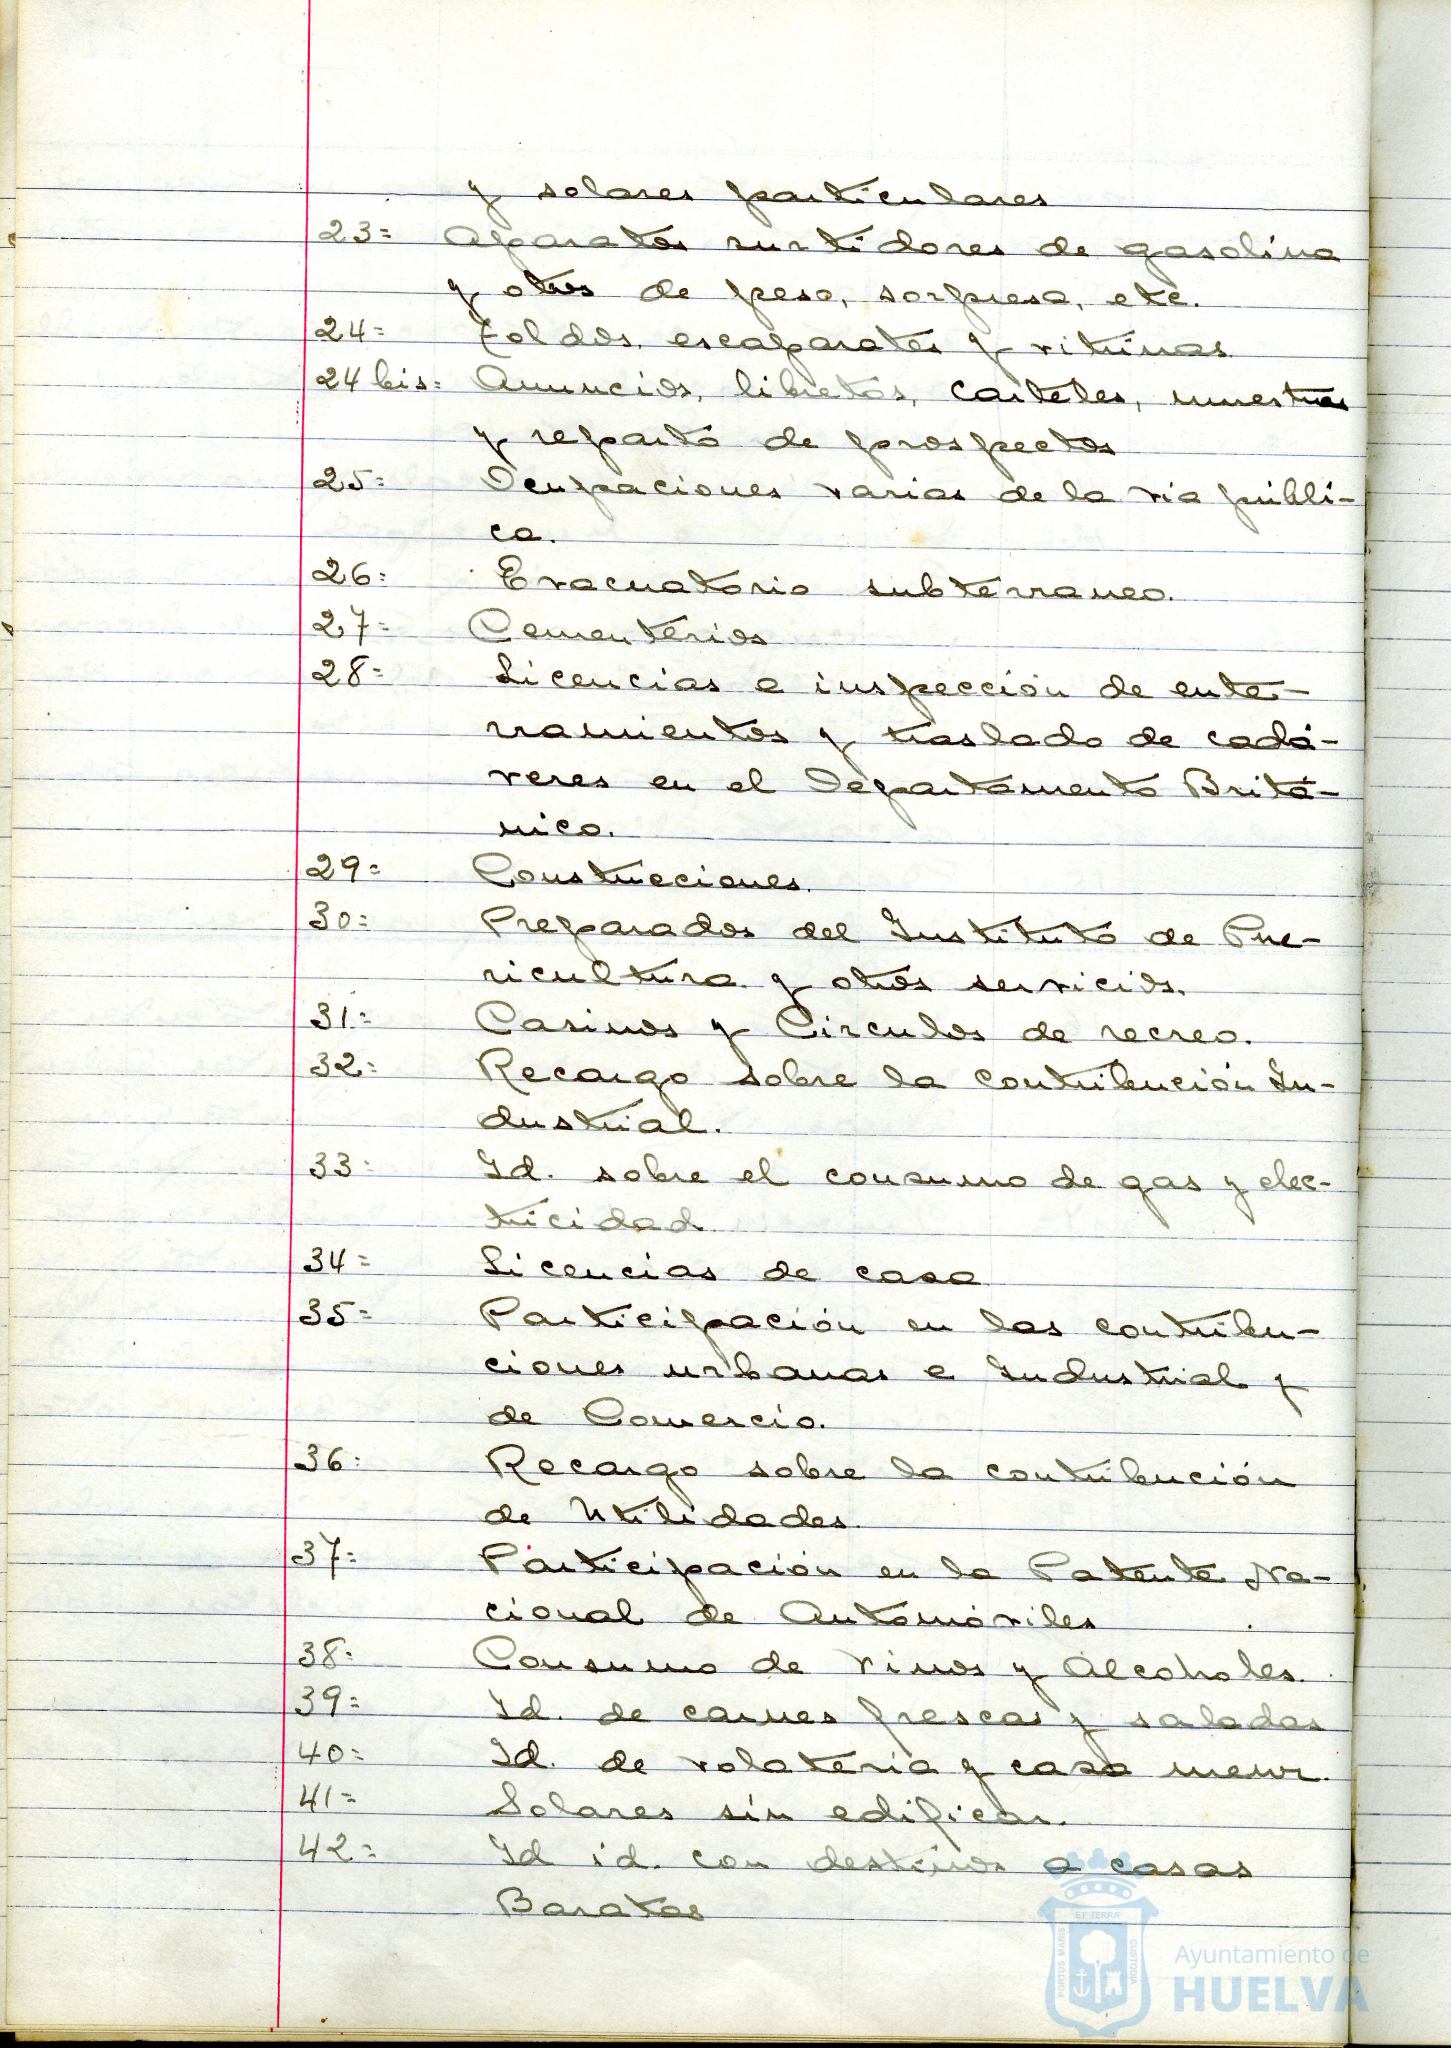 y solares particulares
23= Aparatos surtidores de gasolina
y otros de peso, sorpresa, etc.
24= Toldos, escaparates y vitrinas
24 bis= Anuncios, libretos, carteles, muestras
y reparto de prospectos
25= Ocupaciones varias de la vía públi-
ca.
26= Evacuatorio subterraneo.
27= Cementerios
28= Licencias e inspección de ente-
rramientos y traslado de cadá-
veres en el Departamento Britá-
nico.
29= Construcciones.
30= Preparados del Instituto de Pue-
ricultura y otros servicios.
31= Casinos y Circulos de recreo.
32= Recargo sobre la contribución In-
dustrial.
33= Id. sobre el consumo de gas y elec-
tricidad.
34= Licencias de casa
35= Participación en las contribu-
ciones urbanas e Industrial y
de Comercio.
36= Recargo sobre la contribución
de Utilidades.
37= Participación en la Patente Na-
cional de Automóviles
38= Consumo de vinos y Alcoholes.
39= Id. de carnes frescas y saladas
40= Id. de volateria y caza menor.
41= Solares sin edificar.
42= Id id. con destinos a casas
Baratas
PORTUS MARIS ET TERRÆ CUSTODIA
Ayuntamiento de
HUELVA